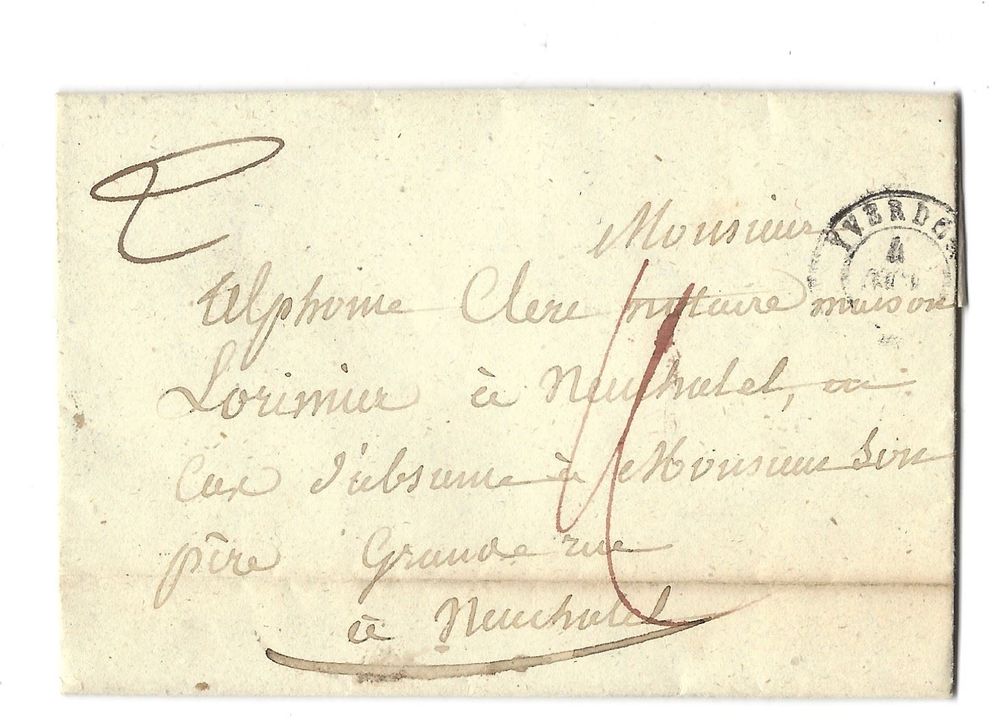 YVERDON
4
Monsieur
Alphonse Clerc notaire maison
Lorimier à Neuchatel, ou
cas d'absence à Monsieur son
père Grande rue
à Neuchatel